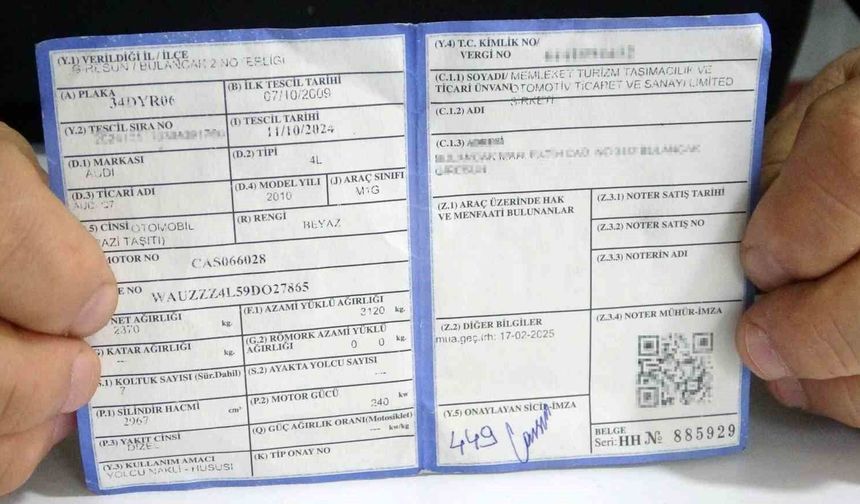 (Y.1) VERİLDİĞİ İL / İLÇE
GİRESUN / BULANCAK 2 NOTERLİĞİ
(A) PLAKA
34DYR06
(B) İLK TESCİL TARİHİ
07/10/2009
(Y.2) TESCİL SIRA NO
(I) TESCİL TARİHİ
11/10/2024
(D.1) MARKASI
AUDI
(D.2) TİPİ
4L
(D.3) TİCARİ ADI
AUDI Q7
(D.4) MODEL YILI
2010
(J) ARAÇ SINIFI
M1G
.5) CİNSİ OTOMOBİL
AZİ TAŞITI)
(R) RENGİ
BEYAZ
MOTOR NO
CAS066028
E NO
WAUZZZ4L59DO27865
NET AĞIRLIĞI
2370 kg.
(F.1) AZAMİ YÜKLÜ AĞIRLIĞI
3120 kg.
) KATAR AĞIRLIĞI
--- kg.
(G.2) RÖMORK AZAMİ YÜKLÜ
AĞIRLIĞI 0 0 kg.
.1) KOLTUK SAYISI (Sür.Dahil)
7
(S.2) AYAKTA YOLCU SAYISI
---
(P.1) SİLİNDİR HACMİ
2967 cm³
(P.2) MOTOR GÜCÜ
240 kw
(P.3) YAKIT CİNSİ
DİZEL
(Q) GÜÇ AĞIRLIK ORANI(Motosiklet)
--- kw/kg
(Y.3) KULLANIM AMACI
YOLCU NAKLİ - HUSUSİ
(K) TİP ONAY NO
(Y.4) T.C. KİMLİK NO/
VERGİ NO
(C.1.1) SOYADI/ MEMLEKET TURİZM TAŞIMACILIK VE
TİCARİ ÜNVANI OTOMOTİV TİCARET VE SANAYİ LİMİTED
ŞİRKETİ
(C.1.2) ADI
(C.1.3) ADRESİ
GİRESUN
(Z.1) ARAÇ ÜZERİNDE HAK
VE MENFAATİ BULUNANLAR
(Z.3.1) NOTER SATIŞ TARİHİ
(Z.3.2) NOTER SATIŞ NO
(Z.3.3) NOTERİN ADI
(Z.2) DİĞER BİLGİLER
mua.geç.trh: 17-02-2025
(Z.3.4) NOTER MÜHÜR-İMZA
(Y.5) ONAYLAYAN SİCİL-İMZA
449
BELGE
Seri: HH № 885929